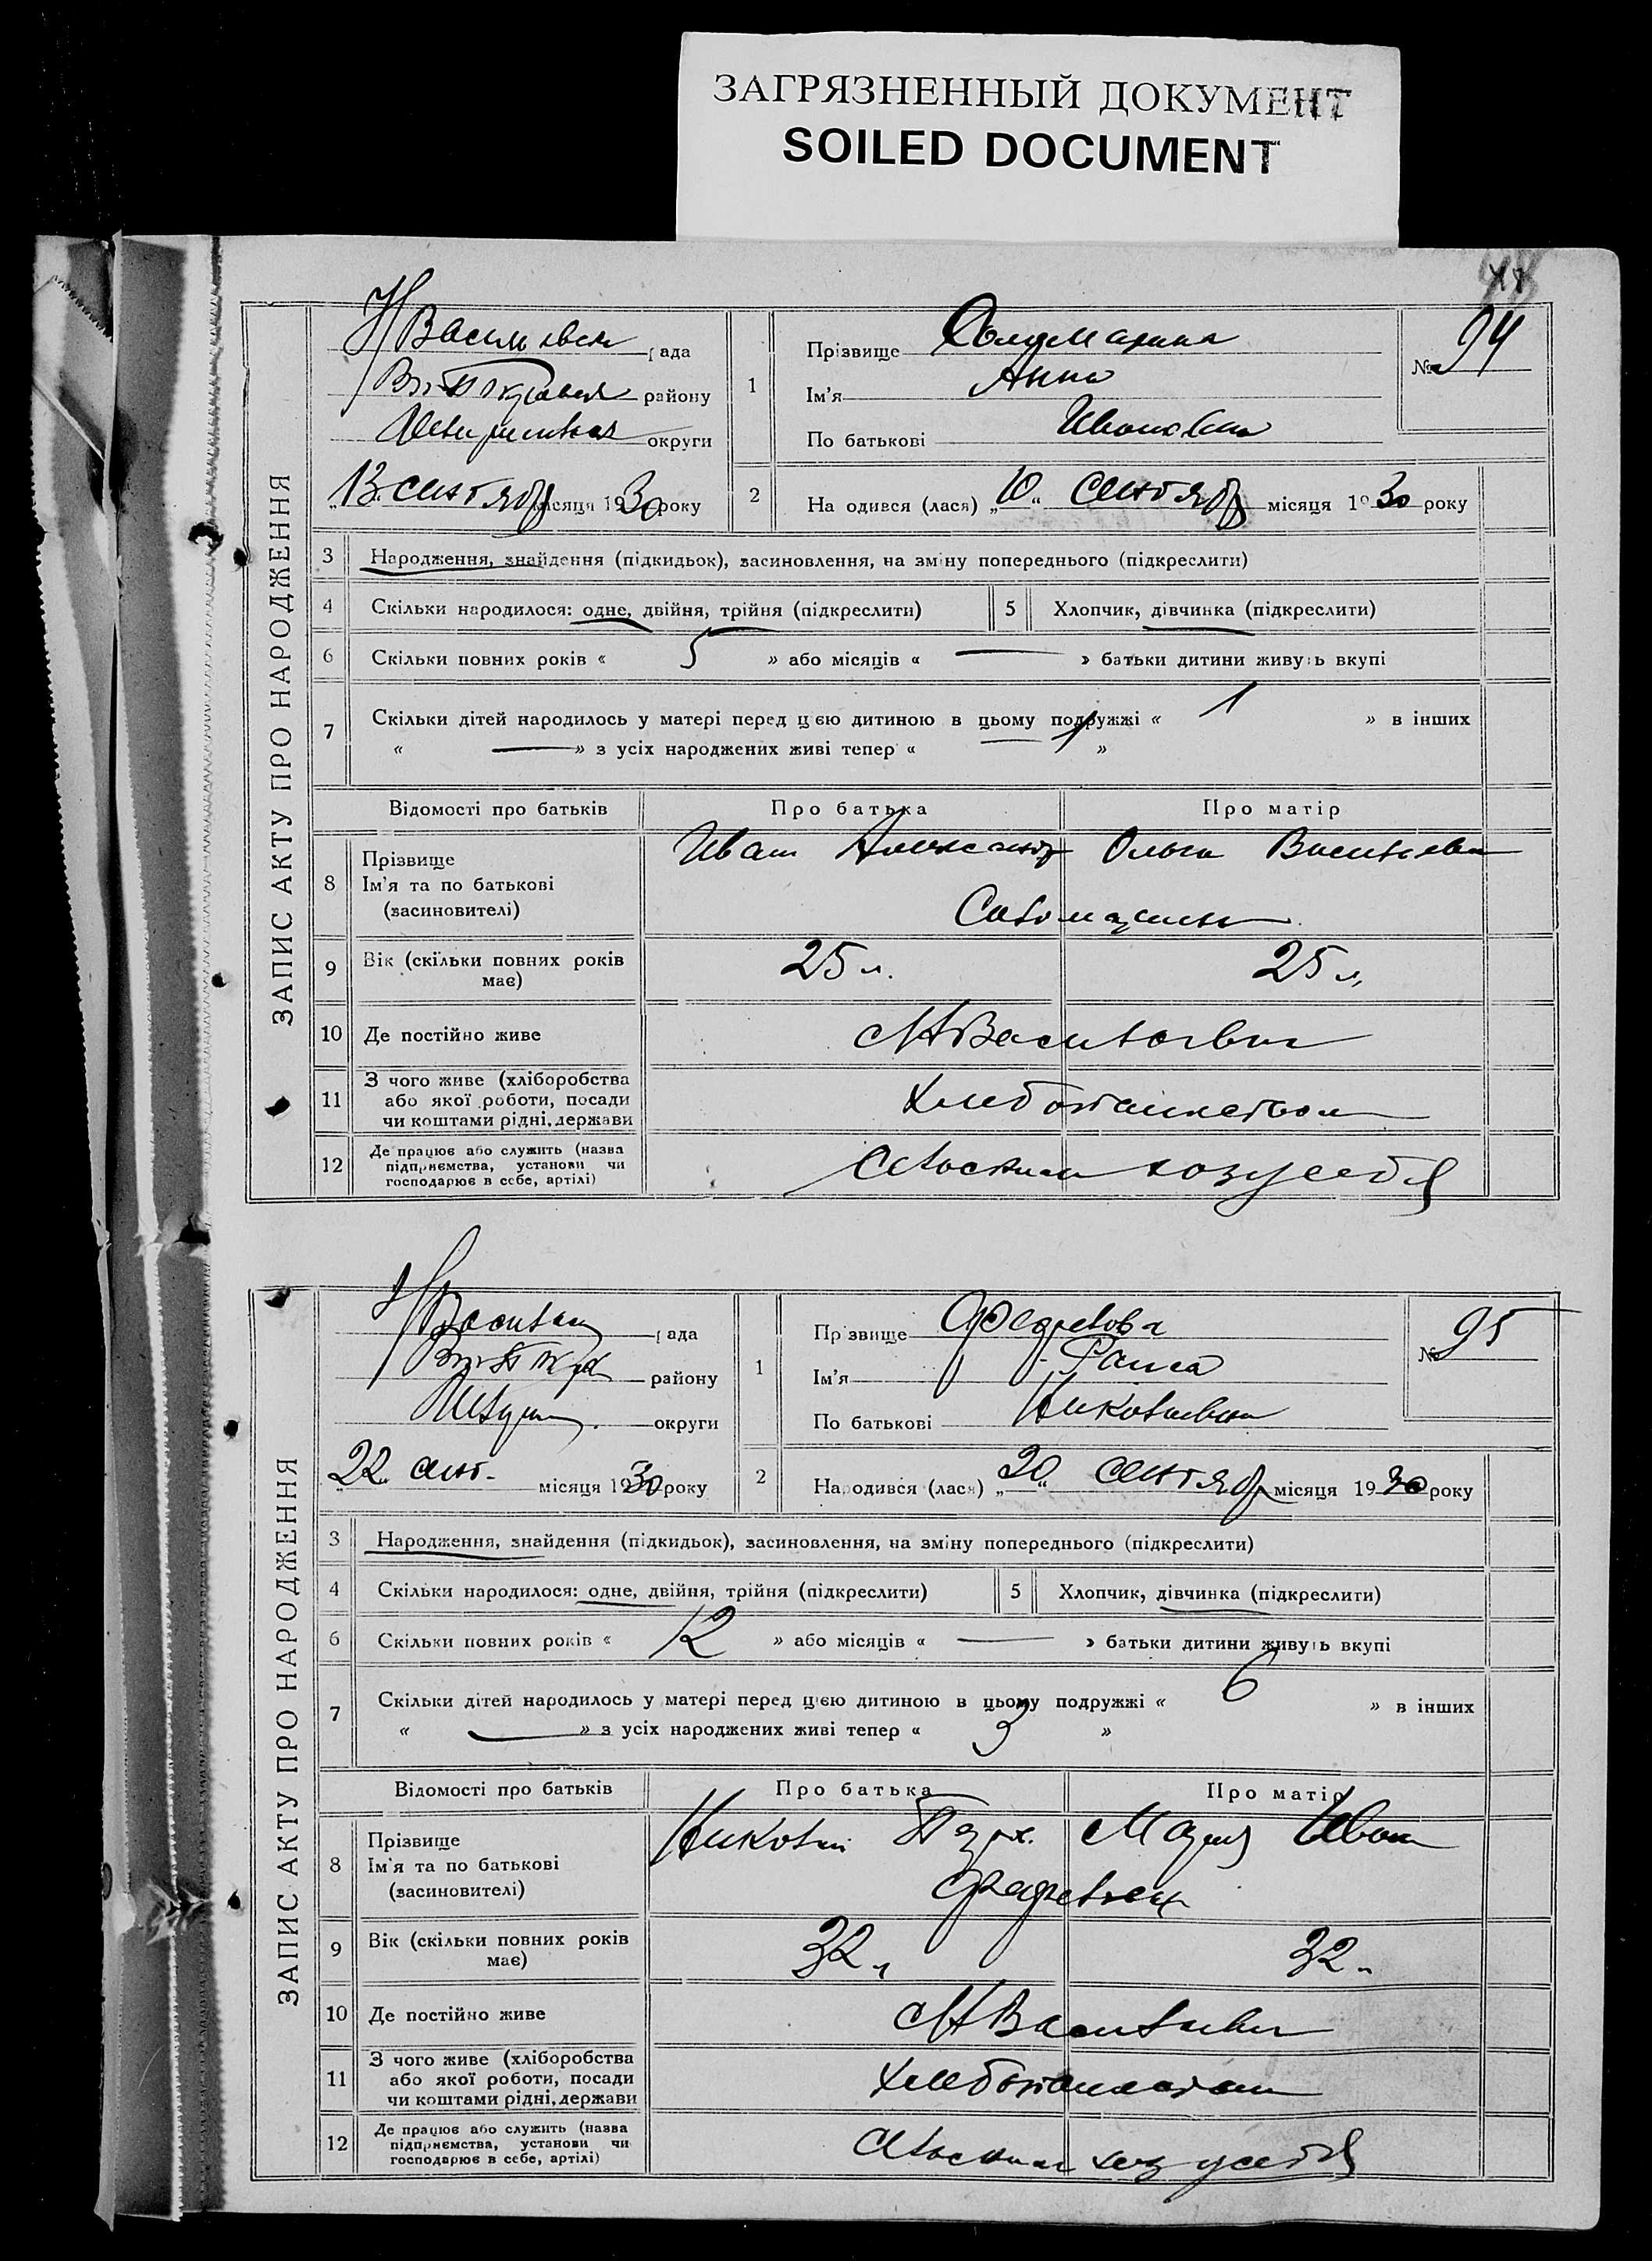 ЗАГРЯЗНЕННЫЙ ДОКУМЕНТ
SOILED DOCUMENT
ЗАПИС АКТУ ПРО НАРОДЖЕННЯ
рада
району
округи
13 сентябр місяця 1930 року
1
Прізвище
Ім'я Анна
По батькові Ивановна
№ 94
2
Народився (лася) „10" сентябр місяця 1930 року
3 Народження, знайдення (підкидьок), засиновлення, на зміну попереднього (підкреслити)
4 Скільки народилося: одне, двійня, трійня (підкреслити)
5 Хлопчик, дівчинка (підкреслити)
6 Скільки повних років « 5 » або місяців « — » батьки дитини живуть вкупі
7 Скільки дітей народилось у матері перед цією дитиною в цьому подружжі « 1 » в інших
« — » з усіх народжених живі тепер « 1 »
Відомості про батьків Про батька Про матір
8 Прізвище
Ім'я та по батькові
(засиновителі)
Иван Александр Ольга Васильевна
9 Вік (скільки повних років
має)
25 л. 25 л.
10 Де постійно живе
НВасильевка
11 З чого живе (хліборобства
або якої роботи, посади
чи коштами рідні, держави
Хлебопашеством
12 Де працює або служить (назва
підприємства, установи чи
господарює в себе, артілі)
Сельским хоз у себя
ЗАПИС АКТУ ПРО НАРОДЖЕННЯ
рада
району
округи
22 сент. місяця 1930 року
1
Прізвище
Ім'я Раиса
По батькові Николаевна
№ 95
2
Народився (лася) „20" сентябр місяця 1930 року
3 Народження, знайдення (підкидьок), засиновлення, на зміну попереднього (підкреслити)
4 Скільки народилося: одне, двійня, трійня (підкреслити)
5 Хлопчик, дівчинка (підкреслити)
6 Скільки повних років « 12 » або місяців « — » батьки дитини живуть вкупі
7 Скільки дітей народилось у матері перед цією дитиною в цьому подружжі « 6 » в інших
« — » з усіх народжених живі тепер « 3 »
Відомості про батьків Про батька Про матір
8 Прізвище
Ім'я та по батькові
(засиновителі)
Николай Мария Иван
9 Вік (скільки повних років
має)
32 л 32 л
10 Де постійно живе
НВасильевка
11 З чого живе (хліборобства
або якої роботи, посади
чи коштами рідні, держави
Хлебопашеством
12 Де працює або служить (назва
підприємства, установи чи
господарює в себе, артілі)
Сельским хоз у себя